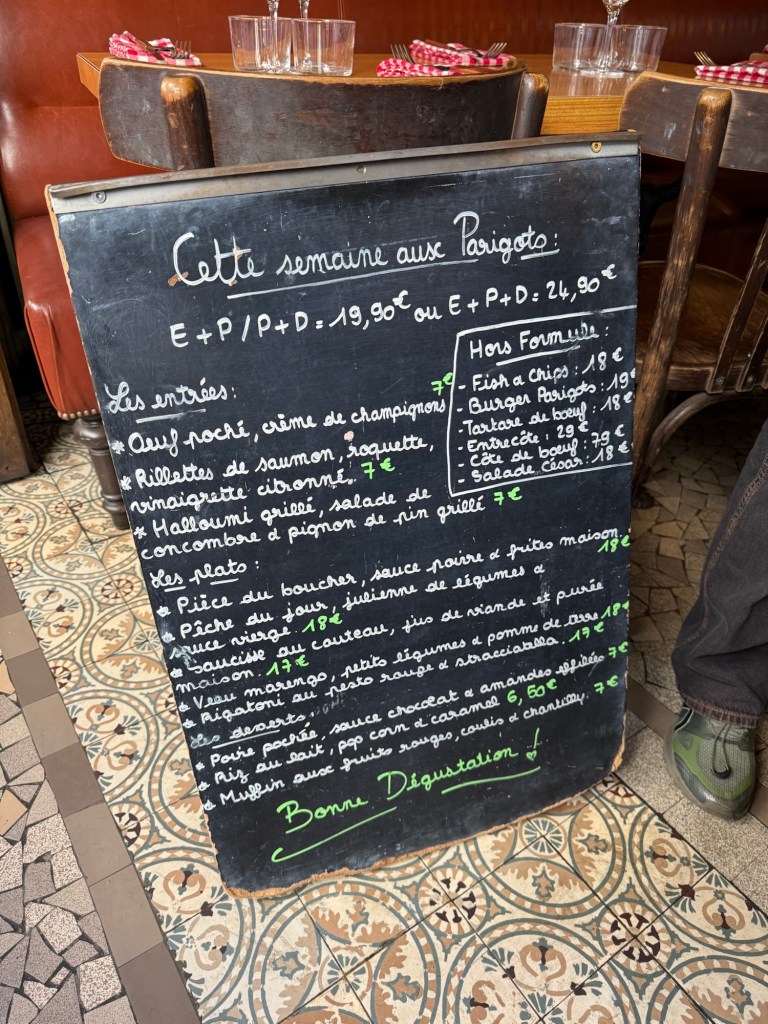 Cette semaine aux Parigots :
E + P / P + D = 19,90€ ou E + P + D = 24,90€
Hors Formule :
- Fish & Chips : 18 €
- Burger Parigots : 19€
- Tartare de boeuf : 18 €
- Entrecôte : 29 €
- Côte de boeuf : 79 €
- Salade César : 18 €
Les entrées :
* Œuf poché, crème de champignons 7€
* Rillettes de saumon, roquette,
vinaigrette citronné. 7 €
* Halloumi grillé, salade de
concombre & pignon de pin grillé 7 €
Les plats :
* Pièce du boucher, sauce poivre & frites maison 18€
* Pêche du jour, julienne de légumes &
sauce vierge. 18 €
* Saucisse au couteau, jus de viande et purée
maison. 17 €
* Veau marengo, petits légumes & pomme de terre 18€
* Rigatoni au pesto rouge & stracciatella. 17 €
Les desserts
* Poire pochée, sauce chocolat & amandes effilées 7 €
* Riz au lait, pop corn & caramel 6,50€
* Muffin aux fruits rouges, coulis & chantilly. 7 €
Bonne Dégustation !